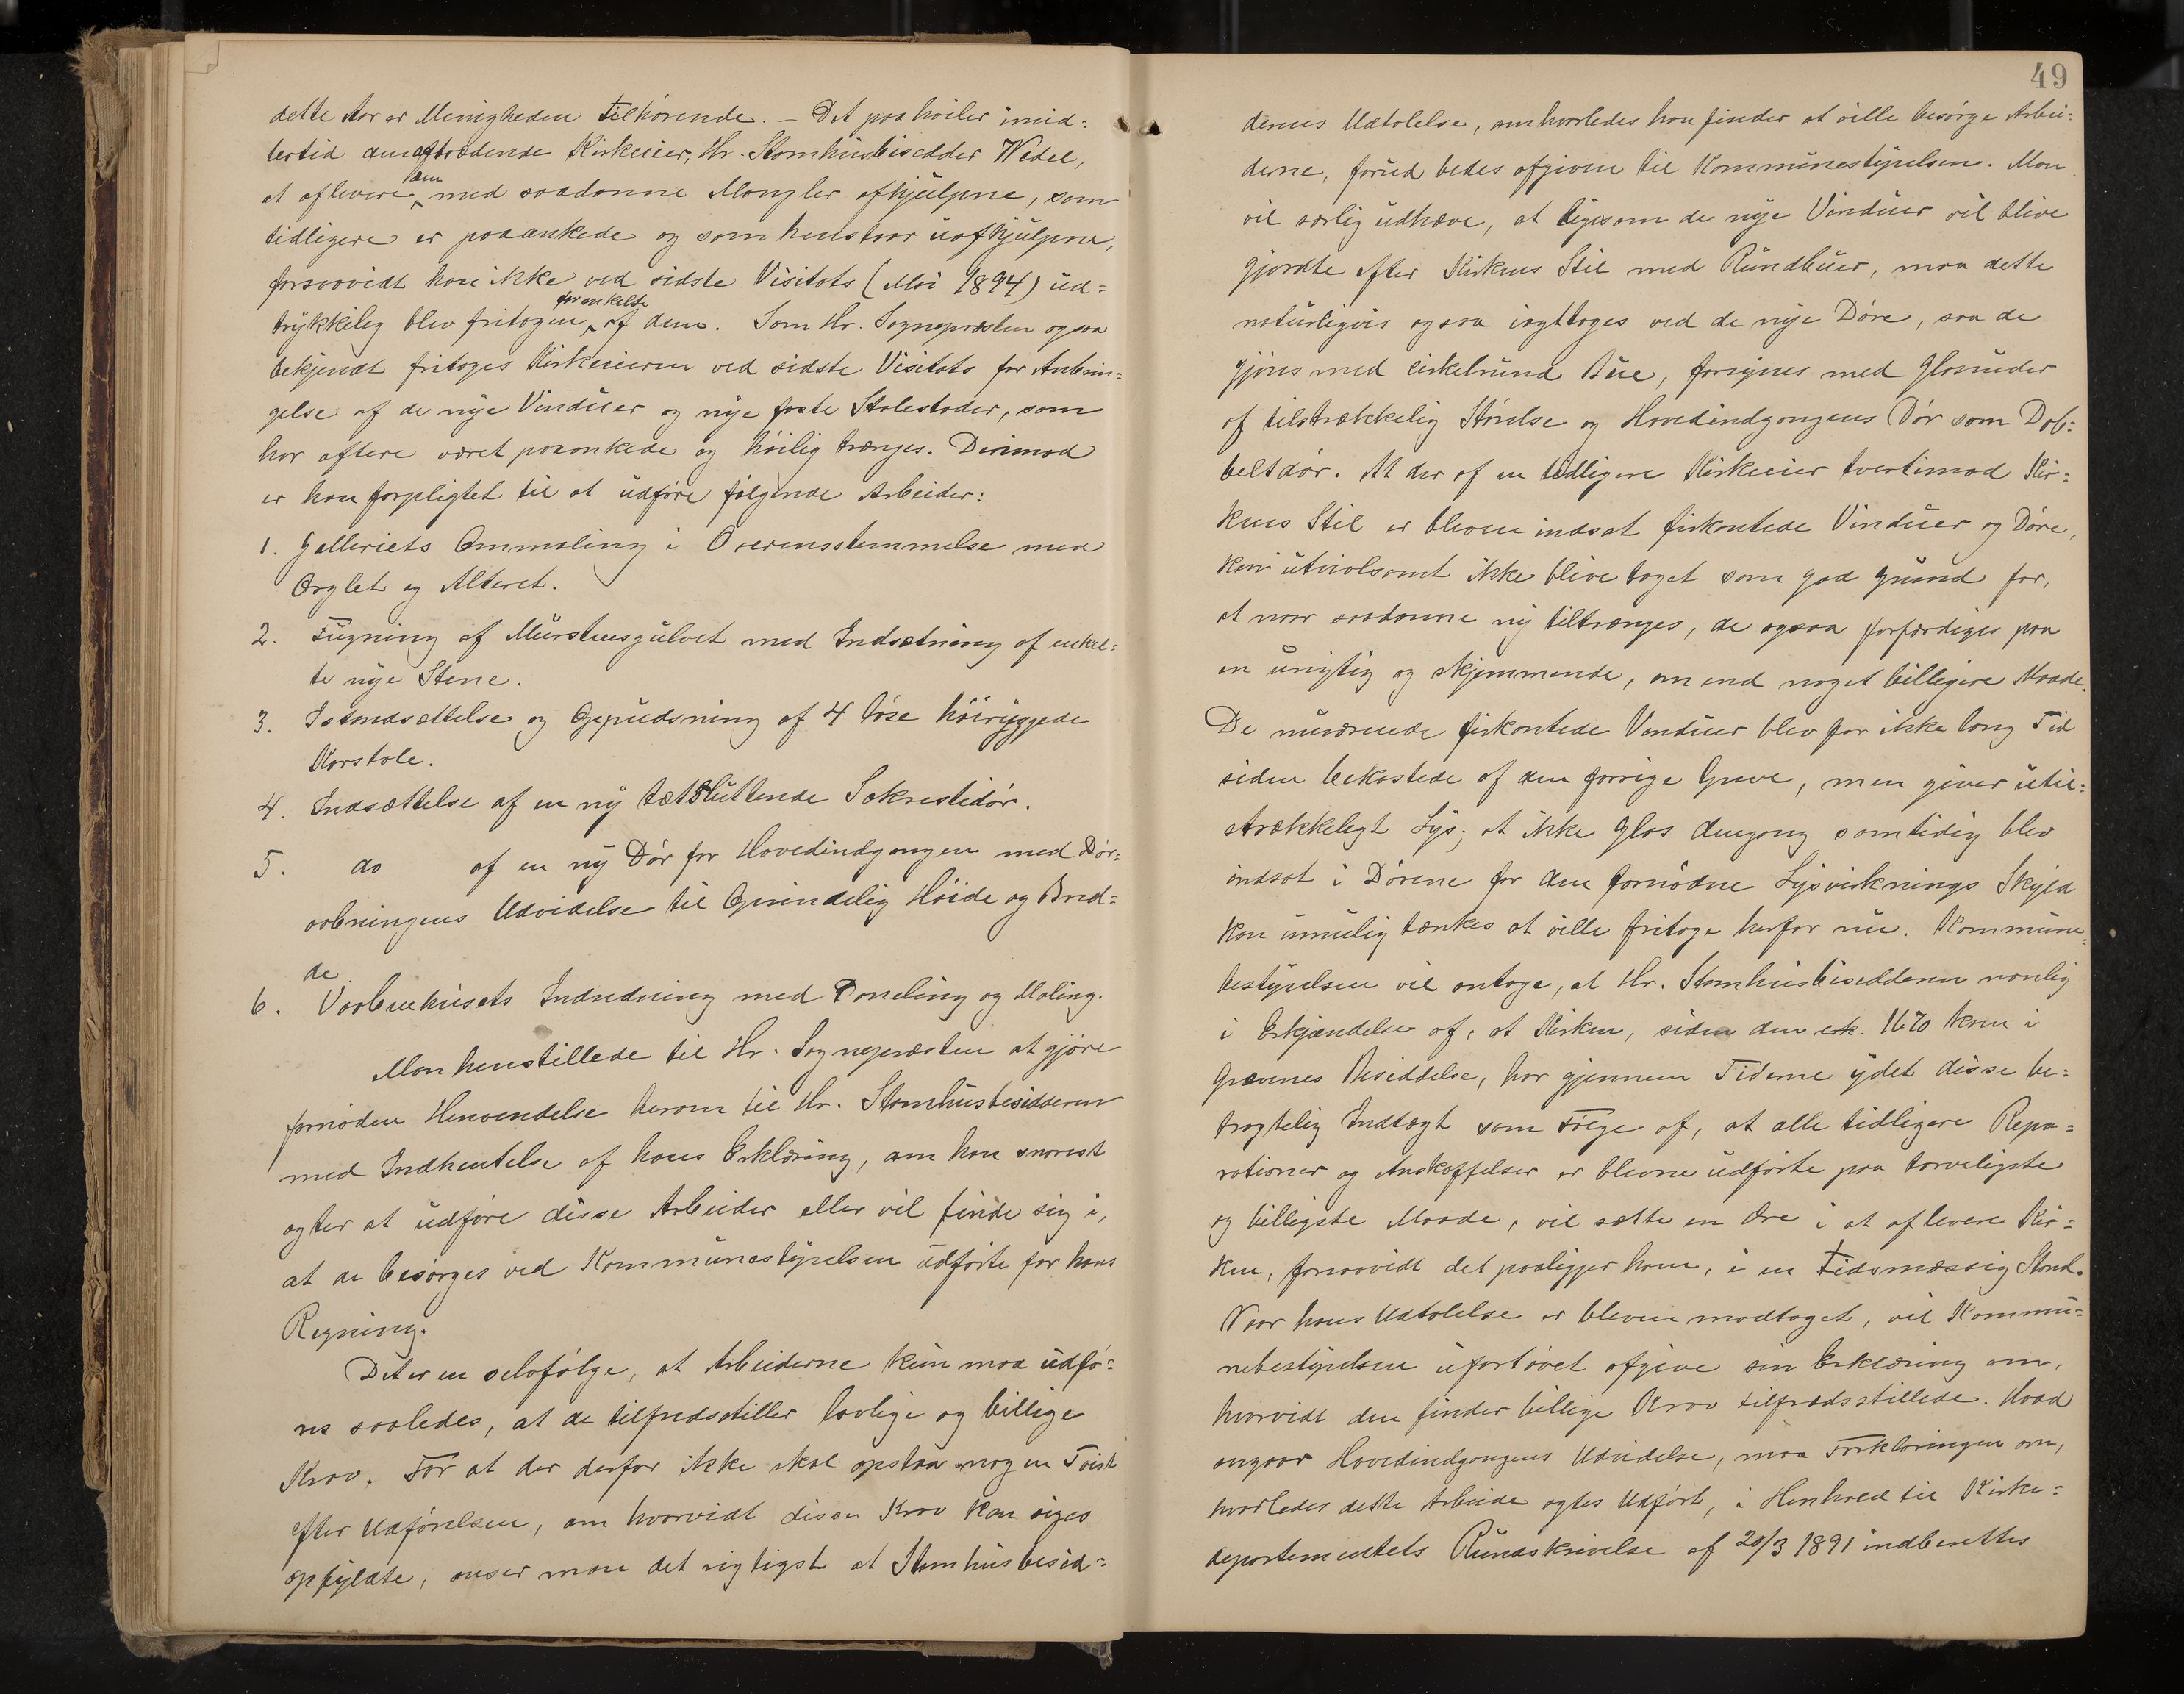 dette Aar er Menigheden tilhørende. – Det paahviler imid=
lertid den aftrædende Kirkeeier, Hr. Stamhusbesidder Wedel,
at aflevere den med saadanne Mangler afhjulpne, som
tidligere er paaankede og som henstaar uafhjulpne,
forsaavidt han ikke ved sidste Visitats (Mai 1894) ud=
trykkelig blev fritagen for enkelte af dem. Som Hr. Sognepræsten ogsaa
bekjendt fritoges Kirkeieren ved sidste Visitats for Anbrin=
gelse af de nye Vinduer og nye faste Stolestader, som
har oftere været paaankede og høilig trænges. Derimod
er han forpligtet til at udføre følgende Arbeider:
1. Galleriets Ommaling i Overensstemmelse med
Orglet og Alteret.
2. Fugning af Murstensgulvet med Indsætning af enkel=
te nye Stene.
3. Istandsættelse og Opudsning af 4 løse høiryggede
Korstole.
4. Indsættelse af en ny tætsluttende Sakrestidør.
5. do af en ny Dør for Hovedindgangen med Dør=
aabningens Udvidelse til Oprindelig Høide og Bred=
de.
6. Vaabenhusets Indredning med Paneling og Maling.
Man henstillede til Hr. Sognepræsten at gjøre
fornøden Henvendelse herom til Hr. Stamhusbesidderen
med Indhentelse af hans Erklæring, om han snarest
agter at udføre disse Arbeider eller vil finde sig i,
at de besørges ved Kommunestyrelsen udførte for hans
Regning.
Det er en selvfølge, at Arbeiderne kun maa udfø=
res saaledes, at de tilfredsstiller lovlige og billige
Krav. For at der derfor ikke skal opstaa nogen Tvist
efter Udførelsen, om hvorvidt disse Krav kan siges
opfyldte, anser man det rigtigst at Stamhusbesid=
49
derens Udtalelse, om hvorledes han finder at ville besørge Arbei=
derne, forud bedes afgiven til Kommunestyrelsen. Man
vil særlig udhæve, at ligesom de nye Vinduer vil blive
gjordte efter Kirkens Stil med Rundbuer, maa dette
naturligvis ogsaa iagttages ved de nye Døre, saa de
gjøres med cirkelrund Bue, forsynes med Glasruder
af tilstrækkelig Størelse og Hovedindgangens Dør som Dob=
beltdør. At der af en tidligere Kirkeeier tvertimod Kir=
kens Stil er bleven indsat firkantede Vinduer og Døre,
kan utvivlsomt ikke blive taget som god Grund for,
at naar saadanne ny tiltrænges, de ogsaa forfærdiges paa
en urigtig og skjemmende, om end noget billigere Maade.
De nuværende firkantede Vinduer blev for ikke lang Tid
siden bekostede af den forrige Greve, men giver util=
strækkeligt Lys; at ikke Glas dengang samtidig blev
indsat i Dørene for den fornødne Lysvirknings Skyld
kan umulig tænkes at ville fritage herfor nu. Kommune=
bestyrelsen vil antage, at Hr. Stamhusbesidderen nemlig
i Erkjændelse af, at Kirken, siden den ca. 1670 kom i
Grevenes Besiddelse, har gjennem Tiderne ydet disse be=
tragtelig Indtægt som Følge af, at alle tidligere Repa=
rationer og Anskaffelser er blevne udførte paa tarveligste
og billigste Maade, vil sætte en Ære i at aflevere Kir=
ken, forsaavidt det paaligger ham, i en Tidsmæssig Stand.
Naar hans Udtalelse er bleven modtaget, vil Kommu=
nebestyrelsen ufortøvet afgive sin Erklæring om,
hvorvidt den finder billige Krav tilfredsstillede. Hvad
angaar Hovedindgangens Udvidelse, maa Forklaringen om,
hvorledes dette Arbeide agtes Udført, i Henhold til Kirke=
departementets Rundskrivelse af 20/3 1891 indberettes